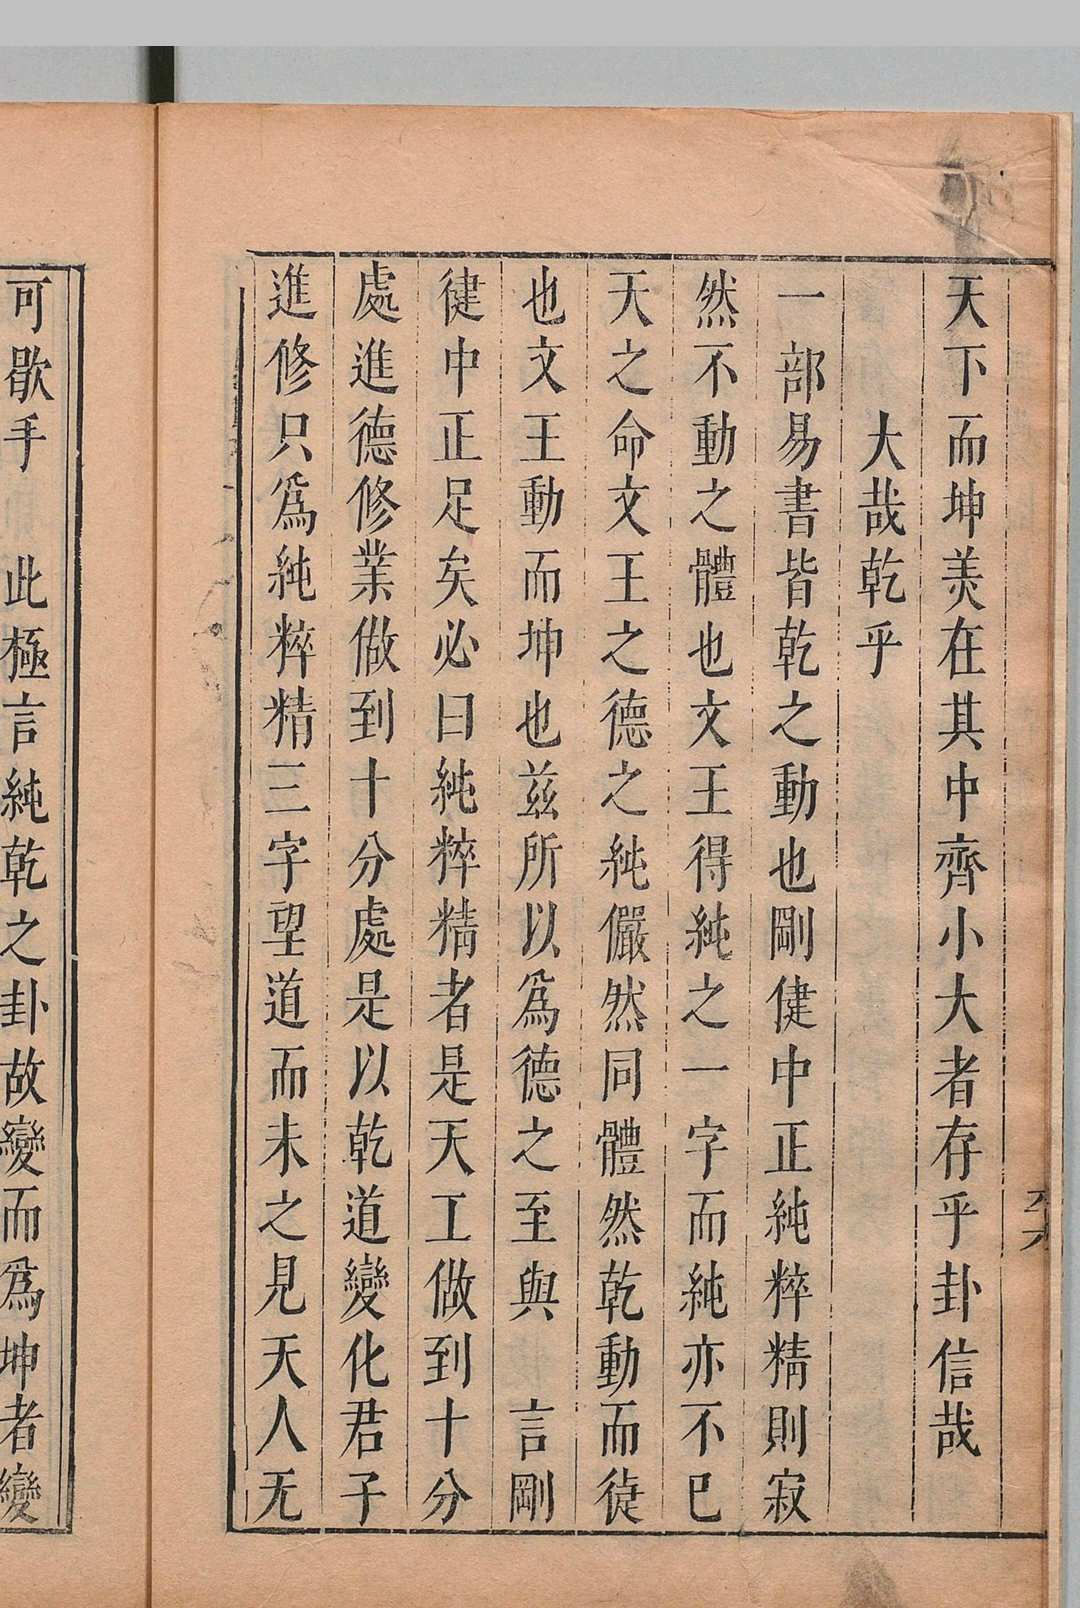 天下而坤美在其中齊小大者存乎卦信哉
大哉乾乎
一部易書皆乾之動也剛健中正純粹精則寂
然不動之體也文王得純之一字而純亦不已
天之命文王之德之純儼然同體然乾動而徒
也文王動而坤也兹所以爲德之至與　言剛
健中正足矣必曰純粹精者是天工做到十分
處進德修業做到十分處是以乾道變化君子
進修只爲純粹精三字望道而未之見天人无
可歇手　此極言純乾之卦故變而爲坤者變